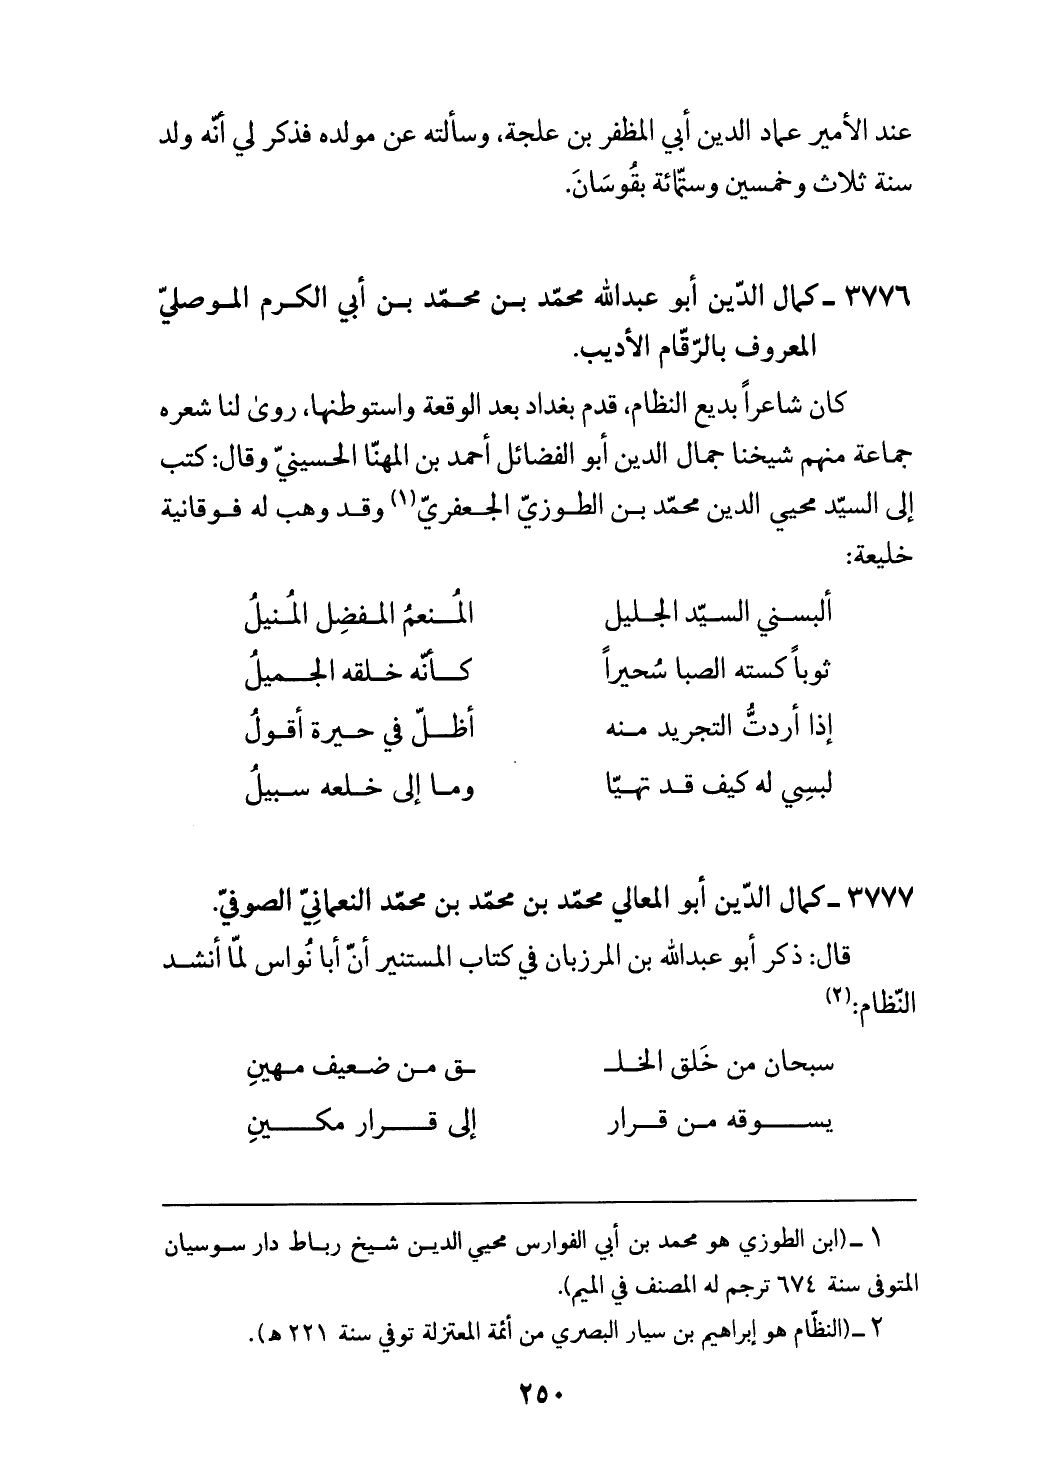 عند الأمير عماد الدين أبي المظفر بن علجة، وسألته عن مولده فذكر لي أنّه ولد
سنة ثلاث وخمسين وستّمائة بقُوسَانَ.
٣٧٧٦ ـ كمال الدّين أبو عبدالله محمّد بن محمّد بن أبي الكرم الموصليّ
المعروف بالرّقّام الأديب.
كان شاعراً بديع النظام، قدم بغداد بعد الوقعة واستوطنها، روىٰ لنا شعره
جماعة منهم شيخنا جمال الدين أبو الفضائل أحمد بن المهنّا الحسينيّ وقال: كتب
إلى السيّد محيي الدين محمّد بن الطوزيّ الجعفريّ(١) وقد وهب له فوقانية
خليعة:
ألبسني السيّد الجليل المُنعمُ المفضِل المُنيلُ
ثوباً كسته الصبا سُحيراً كأنّه خلقه الجميلُ
إذا أردتُّ التجريد منه أظلّ في حيرة أقولُ
لبسِي له كيف قد تهيّا وما إلى خلعه سبيلُ
٣٧٧٧ ـ كمال الدّين أبو المعالي محمّد بن محمّد بن محمّد النعمانِيّ الصوفيّ.
قال: ذكر أبو عبدالله بن المرزبان في كتاب المستنير أنّ أبا نُواس لمّا أنشد
النّظام:(٢)
سبحان من خَلق الخلـ ـق من ضعيف مهينِ
يسوقه من قرار إلى قرار مكينِ
١ ـ (ابن الطوزي هو محمد بن أبي الفوارس محيي الدين شيخ رباط دار سوسيان
المتوفى سنة ٦٧٤ ترجم له المصنف في الميم).
٢ ـ (النظّام هو إبراهيم بن سيار البصري من أئمة المعتزلة توفي سنة ٢٢١ هـ).
٢٥٠